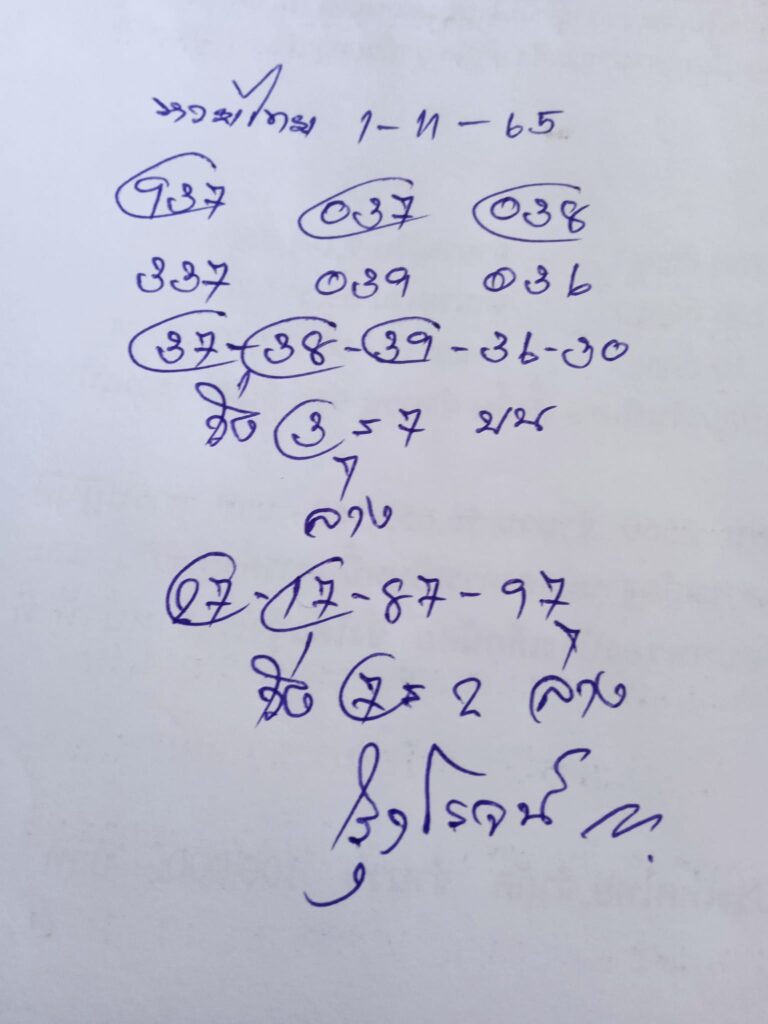 หวยไทย 1-11-65
937 037 038
337 039 036
37-38-39-36-30
วิ่ง 3=7 บน
ล่าง
27-17-87-97
วิ่ง 7=2 ล่าง
รุ่งโรจน์